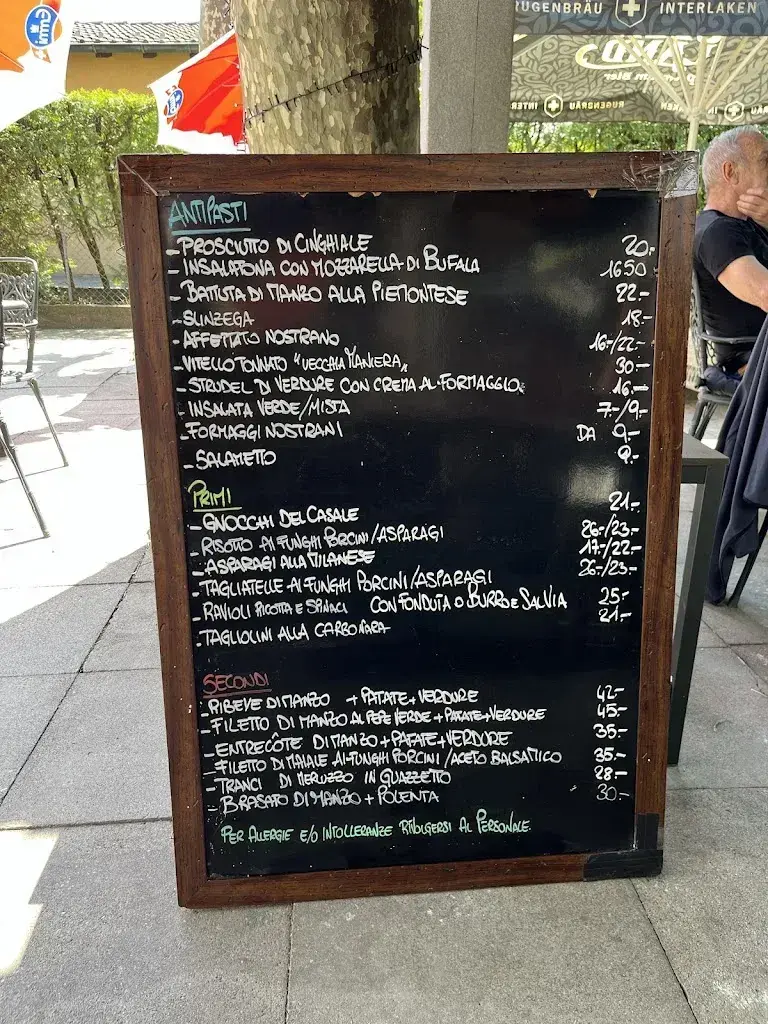 RUGENBRÄU INTERLAKEN
RUGENBRÄU INTER
ANTIPASTI
- PROSCIUTTO DI CINGHIALE 20.-
- INSALATONA CON MOZZARELLA DI BUFALA 16 50
- BATTUTA DI MANZO ALLA PIEMONTESE 22.-
- SLINZEGA 18.-
- AFFETTATO NOSTRANO 16.-/22.-
- VITELLO TONNATO "VECCHIA MANIERA" 30.-
- STRUDEL DI VERDURE CON CREMA AL FORMAGGIO 16.-
- INSALATA VERDE/MISTA 7.-/9.-
- FORMAGGI NOSTRANI DA 9.-
- SALAMETTO 9.-
PRIMI
- GNOCCHI DEL CASALE 21.-
- RISOTTO AI FUNGHI PORCINI/ASPARAGI 26.-/23.-
- ASPARAGI ALLA MILANESE 17.-/22.-
- TAGLIATELLE AI FUNGHI PORCINI/ASPARAGI 26.-/23.-
- RAVIOLI RICOTTA E SPINACI CON FONDUTA O BURRO E SALVIA 25.-
- TAGLIOLINI ALLA CARBONARA 21.-
SECONDI
- RIBEYE DI MANZO + PATATE + VERDURE 42.-
- FILETTO DI MANZO AL PEPE VERDE + PATATE + VERDURE 45.-
- ENTRECÔTE DI MANZO + PATATE + VERDURE 35.-
- FILETTO DI MAIALE AI FUNGHI PORCINI/ACETO BALSAMICO 35.-
- TRANCI DI MERLUZZO IN GUAZZETTO 28.-
- BRASATO DI MANZO + POLENTA 30.-
PER ALLERGIE E/O INTOLLERANZE RIVOLGERSI AL PERSONALE.